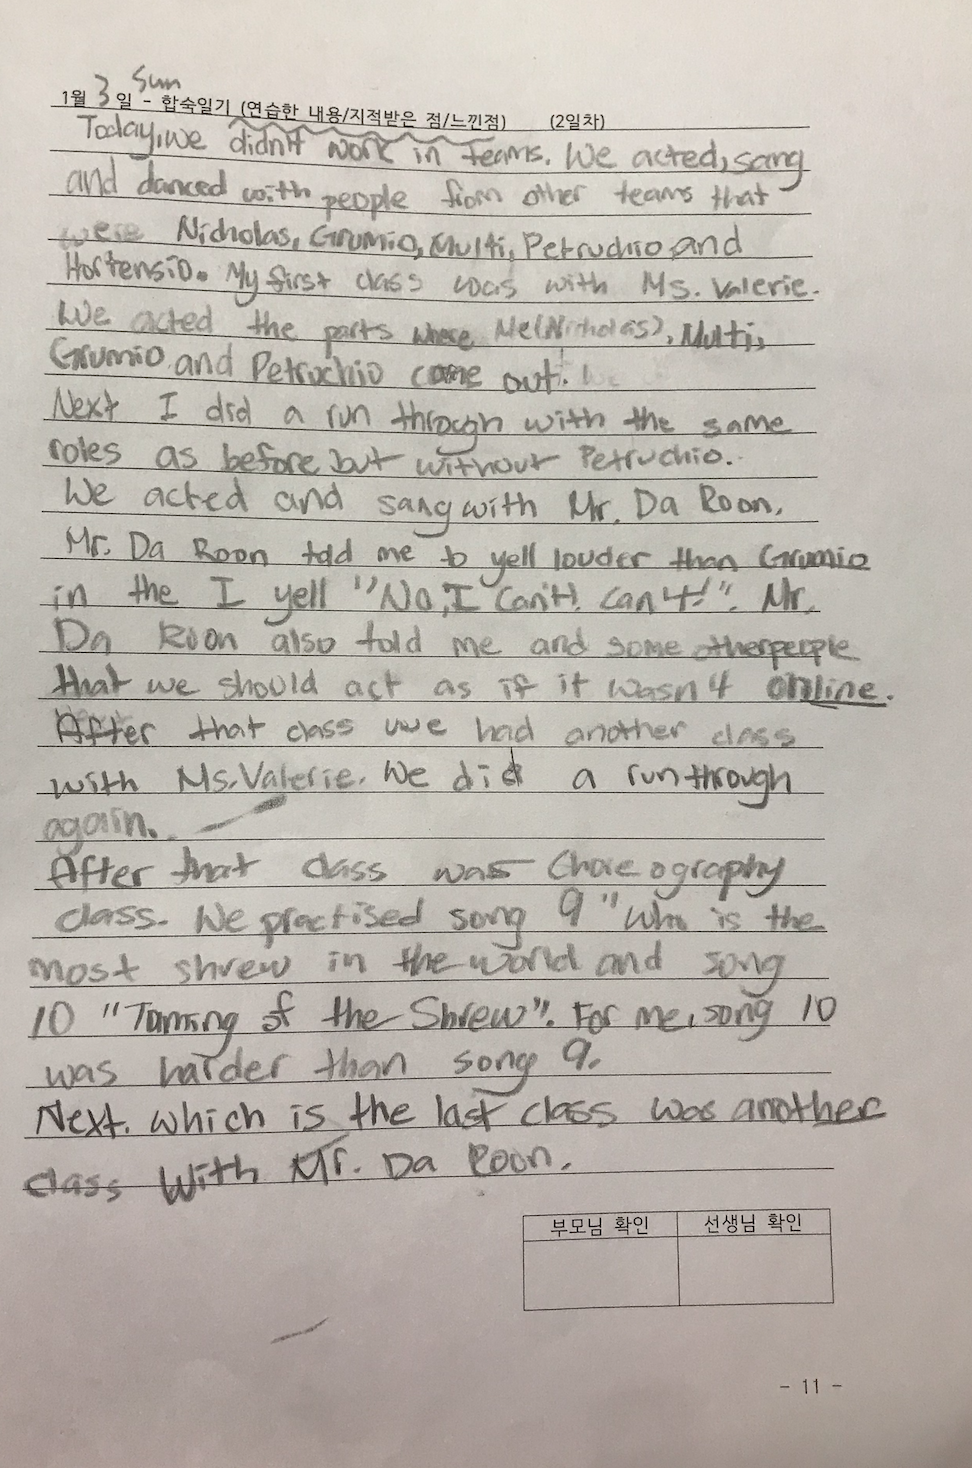 Sun
1월 3일 - 합숙일기 (연습한 내용/지적받은 점/느낀점) (2일차)
Today, we didn't work in teams. We acted, sang
and danced with people from other teams that
were Nicholas, Grumio, Multi, Petruchio and
Hortensio. My first class was with Ms. Valerie.
We acted the parts where Me(Nicholas), Multi,
Grumio and Petruchio come out. We
Next I did a run through with the same
roles as before but without Petruchio.
We acted and sang with Mr. Da Roon.
Mr. Da Roon told me to yell louder than Grumio
in the I yell "No, I can't! can't!". Mr.
Da Roon also told me and some other people
that we should act as if it wasn't online.
After that class we had another class
with Ms. Valerie. We did a run through
again.
After that class was Choreography
class. We practised song 9 "Who is the
most shrew in the world and song
10 "Taming of the Shrew". For me, song 10
was harder than song 9.
Next. which is the last class was another
class With Mr. Da Roon.
부모님 확인 선생님 확인
- 11 -